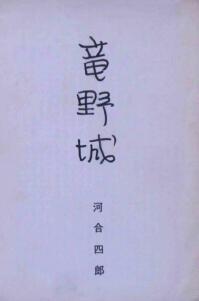 竜野城
河合四郎